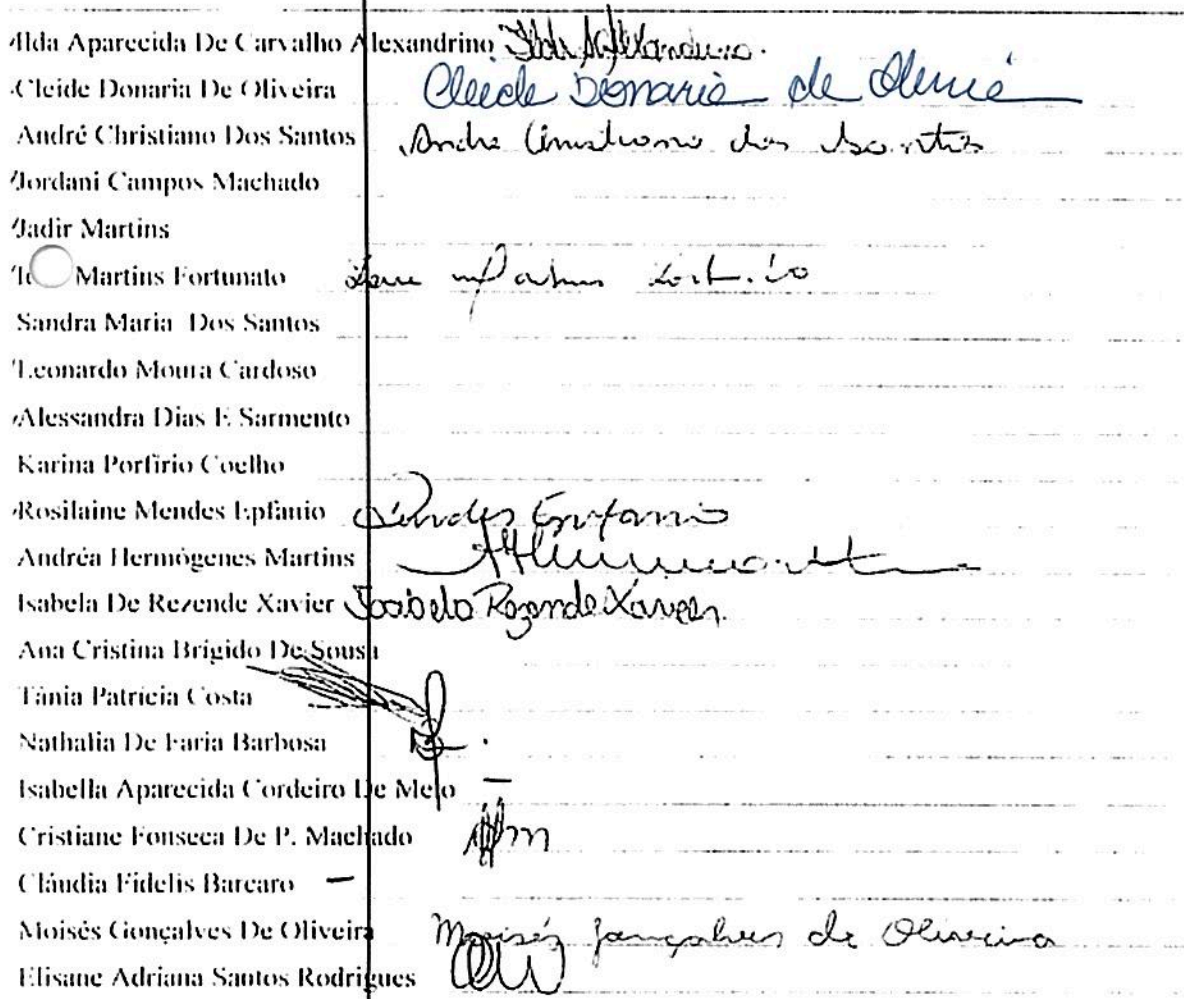 Ilda Aparecida De Carvalho Alexandrino
Cleide Donaria De Oliveira Cleide Donaria de
André Christiano Dos Santos Andre Christiano dos Santos
Jordani Campos Machado
Jadir Martins
Martins Fortunato
Sandra Maria Dos Santos
Leonardo Moura Cardoso
Alessandra Dias E Sarmento
Karina Porfirio Coelho
Rosilaine Mendes Epfânio
Andréa Hermógenes Martins
Isabela De Rezende Xavier Isabela Rezende Xavier
Ana Cristina Brígido De Sousa
Tânia Patrícia Costa
Nathalia De Faria Barbosa
Isabella Aparecida Cordeiro De Melo —
Cristiane Fonseca De P. Machado
Cláudia Fidelis Barcaro —
Moisés Gonçalves De Oliveira Moisés Gonçalves de Oliveira
Elisane Adriana Santos Rodrigues